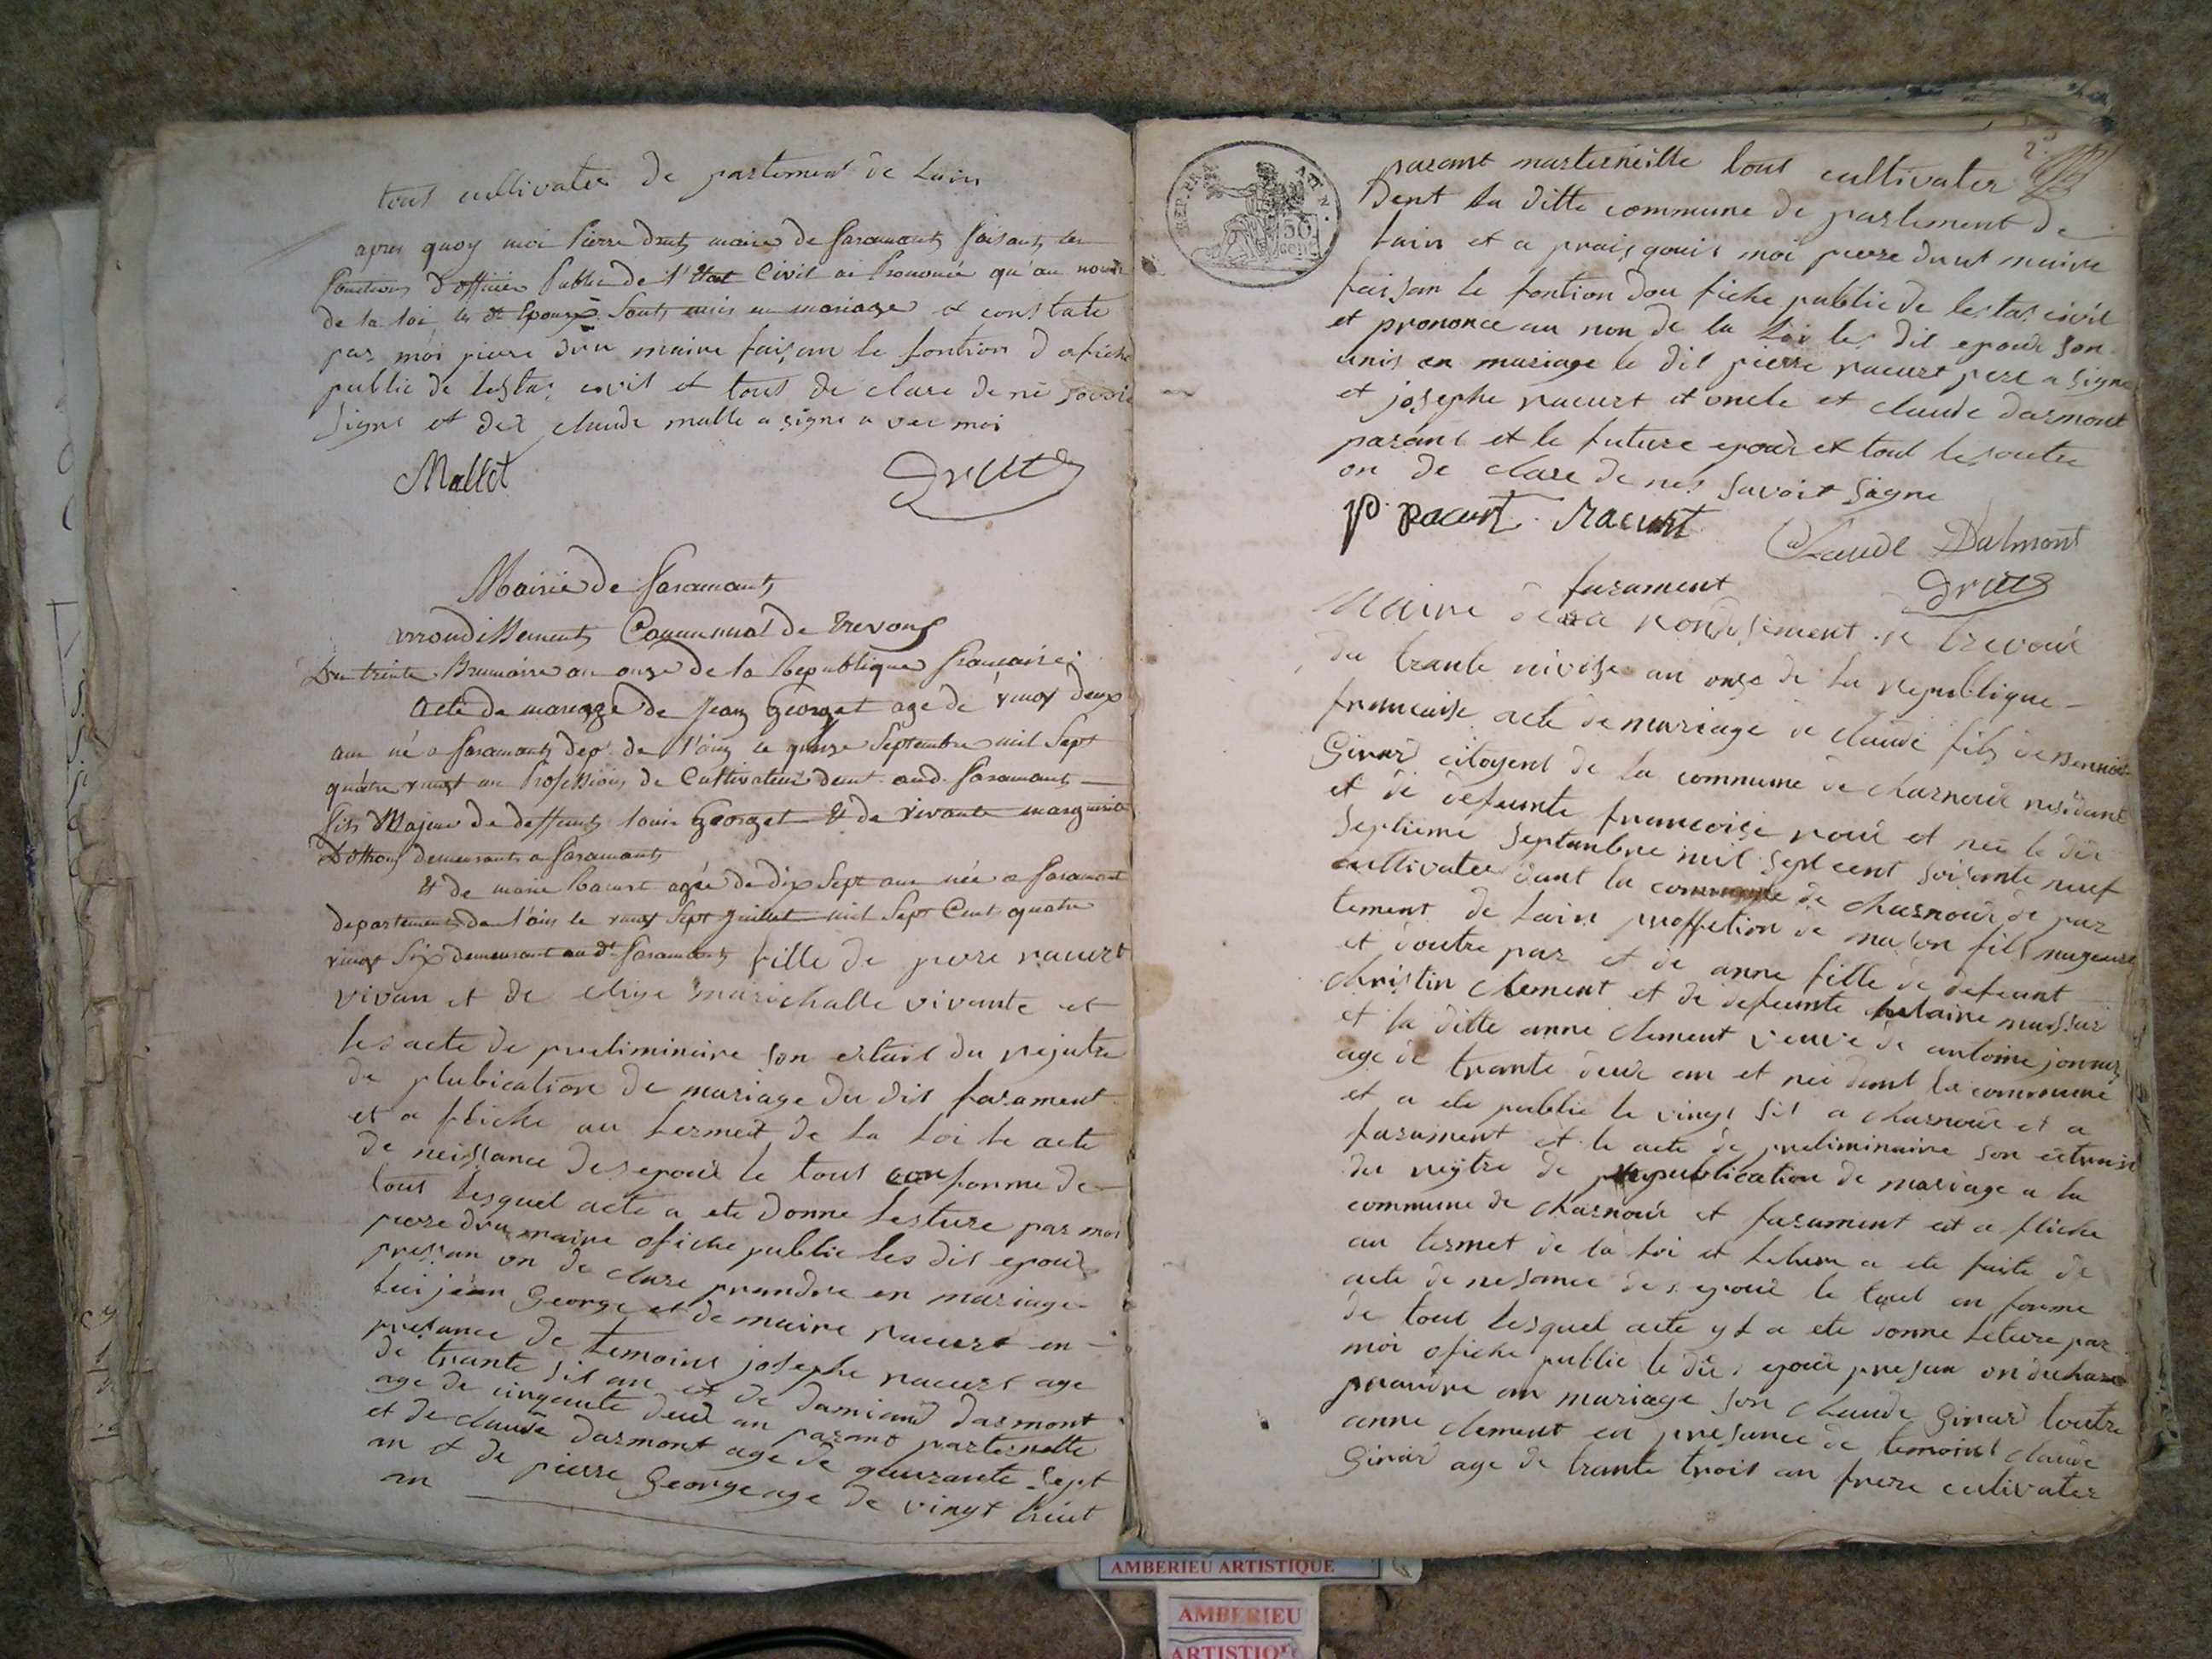 tous cultivater de partement de Lain
apres quoy moi Pierre Drut maire de faramant faisant les
fonctions d'officier Public de l'Etat Civil ai Prononcé qu'au nom
de la loi les dt Epoux Sont unis en mariage et constate
par moi piere dru maire faiçan le fontion d ofiche
public de lestas civil et tous de clare de ne savoir
signe et del claude malle a signe a vec moi
Mallet Drut
Mairie de faramant
arrondissement Communal de Trevoux
Du trente Brumaire an onze de la Republique française
acte de mariage de Jean Georget agé de vingt deux
ans né a faramant dep. de l'ain le quinze Septembre mil Sept
quatre vingt un Profession de Cultivateur demt aud. faramant
fils Majeur de deffunt louis Georget & de vivante marguerite
demeurant a faramant
& de marie Racurt agée de dix Sept ans née a faramant
departement de l'ain le vingt Sept Juillet mil Sept Cent quatre
vingt Six demeurant au dt faramant fille de piere racurt
vivan et de marichalle vivante et
les acte de preliminaire son estait du rejistre
de plubication de mariage du dit farament
et a ffiche au termet de la Loi le acte
de neissance des epouë le tout conforme de
tout lesquel acte a ete donne lesture par moi
piere dru maire ofiche public les dit epouë
presan on de clare prandre en mariage
lui jean George et de maire racurt en
presance de temoins josephe racurt age
de trante sis an et de damiand darmont
age de cinqante deux an parant parternelle
et de claude darmont age de quarante sept
an et de pierre George age de vingt huit
an
parant marterneille tous cultivater
dent la ditte commune de partement de
Lain et a prais quois moi piere drut maire
faisan le fontion dou fiche public de lestas civil
et prononce au non de la Loi les dit epouë son
unis en mariage le dit pierre racurt pere a signe
et josephe racurt d'oncle et claude darmont
parant et le future epouë et tout les outre
on de clare de nes savoir signe
P. Racurt Racurt
Claude Dalmont
Drut
farament
Maire de a rondisement de trevouë
du trante nivose an onze de la republique
francaise acte de mariage de claude fils de
Girard citoyent de la commune de charnouë residant
et de defunte francoise rouë et née le dis
septieme septanbre mil sept cent soisante neuf
cultivater dant la commune de charnouë de par
tement de Lain proffetion de mason fils mageure
et doutre par et de anne fille de defeunt
christin clement et de defeunte
et la ditte anne clement veuve de antoine
age de trante deux an et née dant la commune
et a ete publie le vingt sis a charnouë et a
farament et le acte de preliminaire son estrais
du rejitre de publication de mariage a la
commune de charnouë et farament et a ffiche
au termet de la Loi et leture a ete faite de
acte de nesance des epouë le tout en forme
de tout lesquel acte y l a ete donne leture par
moi ofiche public le dis epouë presan on declare
prandre an mariage son claude Girard loutre
anne clement en presance de temoins claude
Girard age de trante trois an frere cultivater
REP. FRA. 50 cent.
AMBERIEU ARTISTIQUE
AMBERIEU